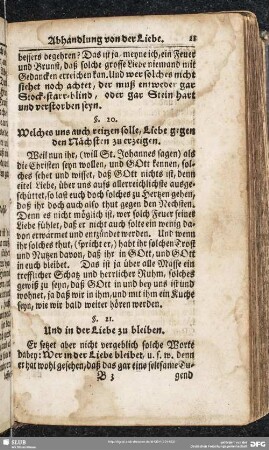 Abhandlung von der Liebe. 11
bessers begehren? Das ist ja, meyne ich, ein Feuer
und Brunst, daß solche grosse Liebe niemand mit
Gedancken erreichen kan. Und wer solches nicht
siehet noch achtet, der muß entweder gar
Stock-starr-blind, oder gar Stein hart
und verstorben seyn.
§. 10.
Welches uns auch reitzen solle, Liebe gegen
den Nächsten zu erzeigen.
Weil nun ihr, (will St. Johannes sagen) als
die Christen seyn wollen, und GOtt kennen, sol-
ches sehet und wisset, daß GOtt nichts ist, denn
eitel Liebe, über uns aufs allerreichlichste ausge-
schüttet, so last euch doch solches zu Hertzen gehen,
daß ihr doch auch also thut gegen den Nechsten.
Denn es nicht möglich ist, wer solch Feuer seiner
Liebe fühlet, daß er nicht auch solte ein wenig da-
von erwarmet und entzündet werden. Und wenn
ihr solches thut, (spricht er,) habt ihr solchen Trost
und Nutzen davon, daß ihr in GOtt, und GOtt
in euch bleibet. Das ist ja über alle Masse ein
trefflicher Schatz und herrlicher Ruhm, solches
gewiß zu seyn, daß GOtt in und bey uns ist und
wohnet, ja daß wir in ihm und mit ihm ein Kuche
seyn, wie wir bald weiter hören werden.
§. 11.
Und in der Liebe zu bleiben.
Er setzet aber nicht vergeblich solche Worte
dabey: Wer in der Liebe bleibet, u. s. w. denn
er hat wohl gesehen, daß das gar eine seltsame Tu-
B 3 gend
SLUB
DFG